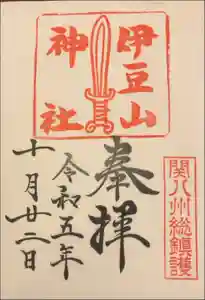 伊豆山
神社
奉拝
令和五年
十月廿二日
関八州総鎮護